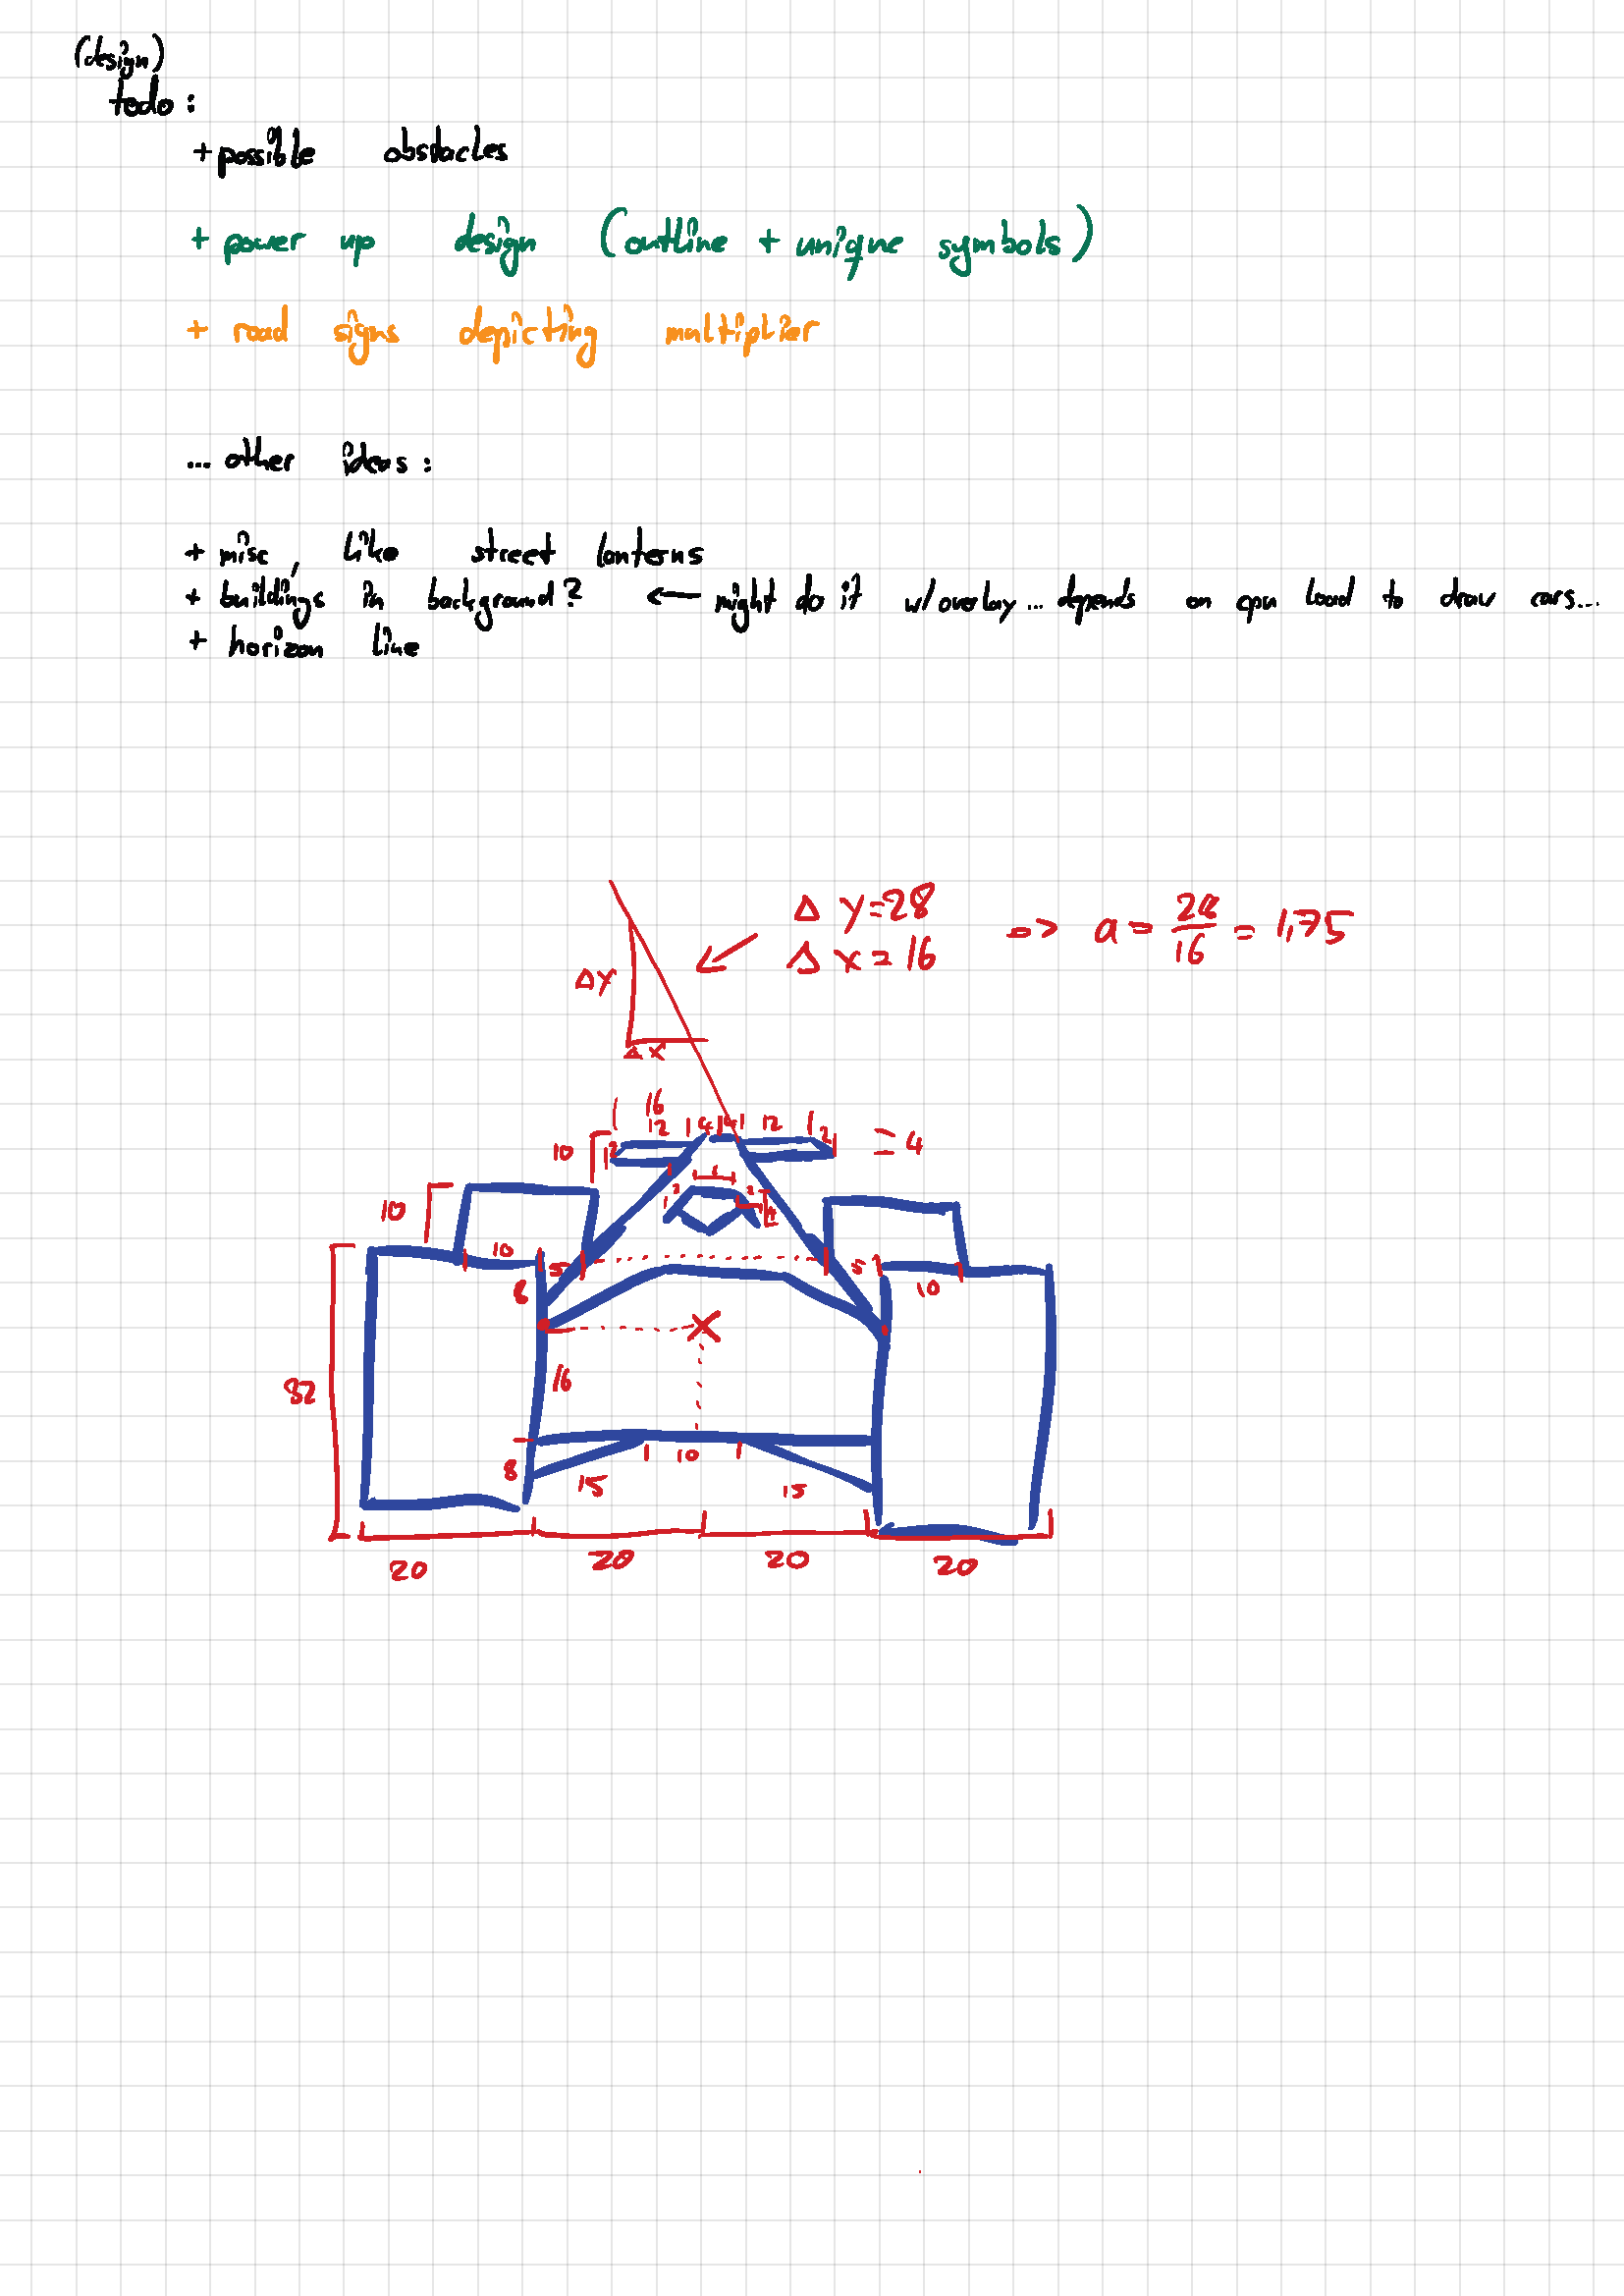 (design)
todo:
+ possible obstacles
+ power up design (outline + unique symbols)
+ road signs depicting multiplier
... other ideas:
+ misc, like street lanterns
+ buildings in background? ← might do it w/ overlay... depends on cpu load to draw cars...
+ horizon line
Δ y=28
Δ x = 16
=> a = 28/16 = 1,75
Δy
Δx
16
12 4 4 12 2
10 2 4
10
2 2 4
10 5 5 10
8
32
16
8 15 10 15
20 20 20 20